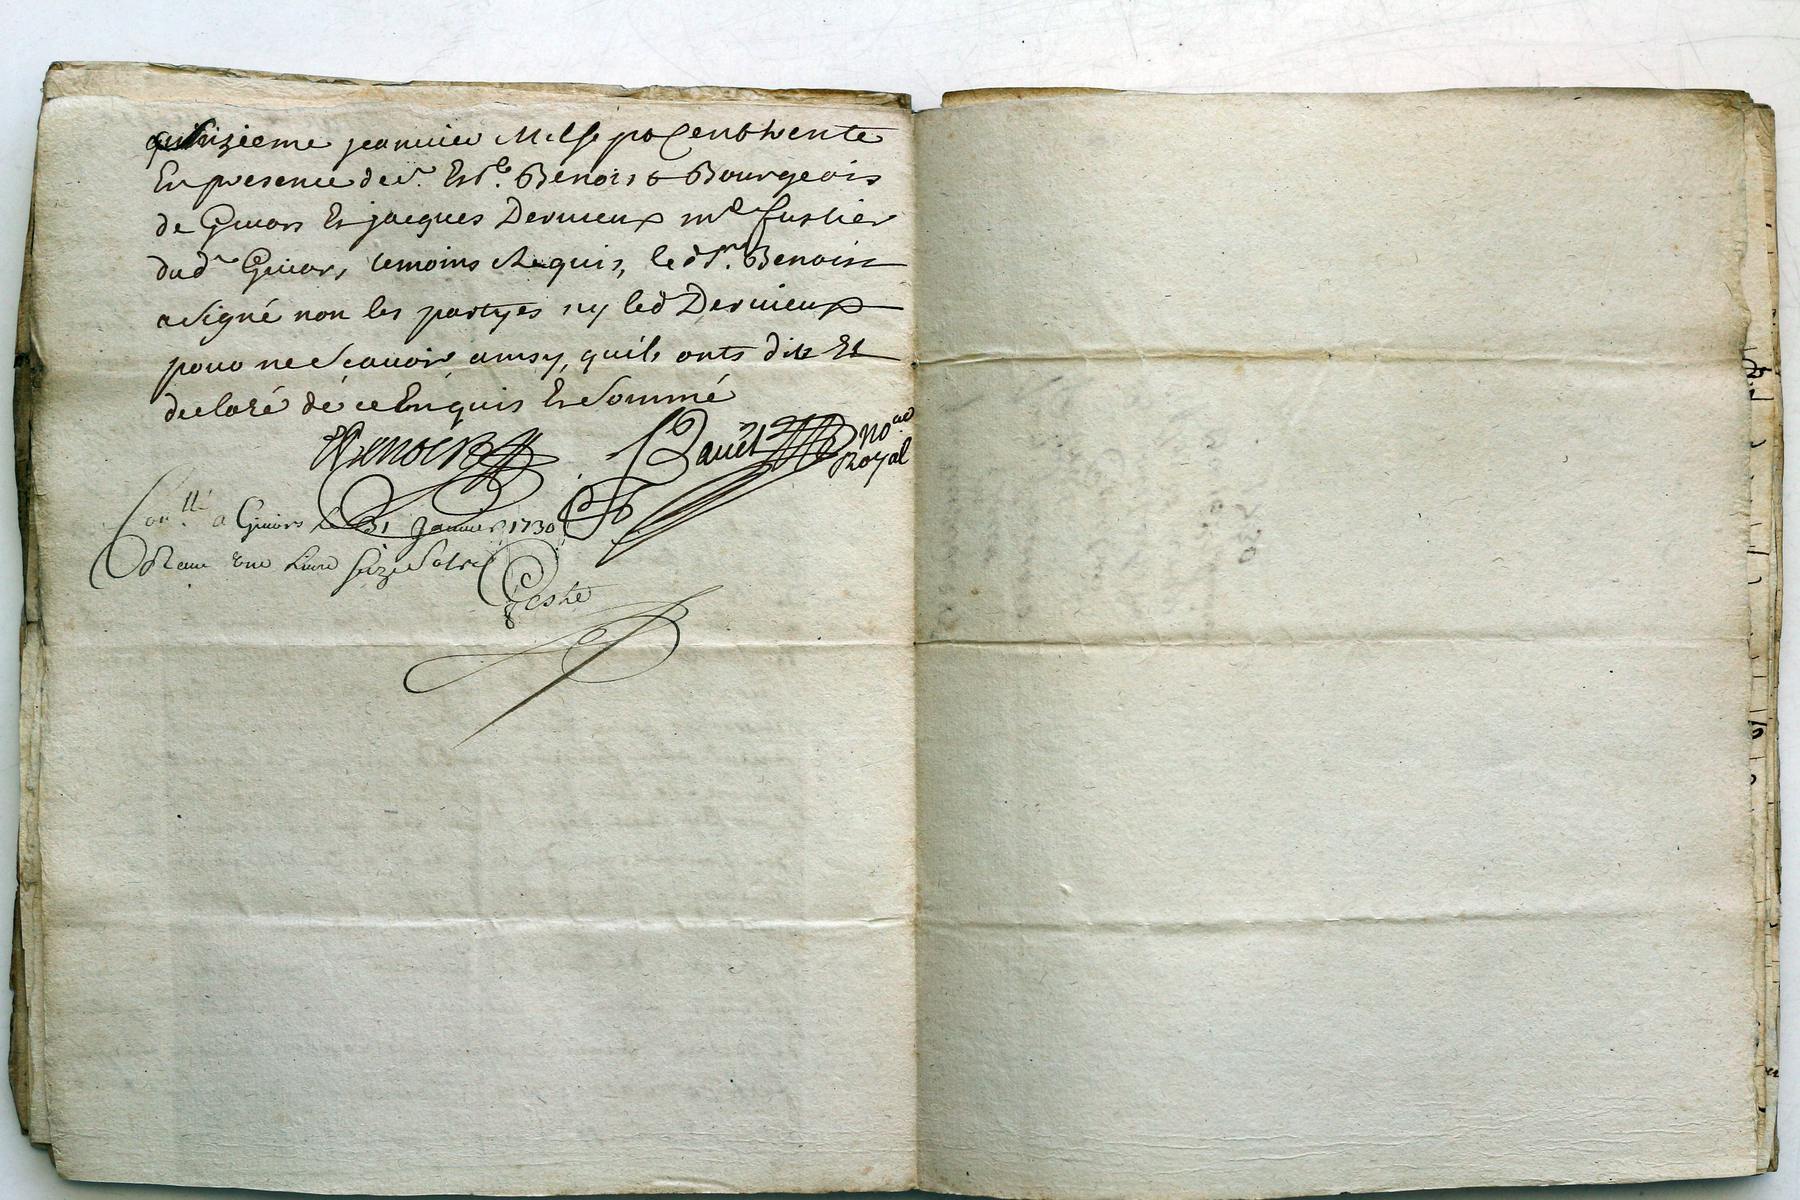 quinzieme jeanvier Mil sept Cent trente
En presence de sr. Est.e Benoist Bourgeois
de Givors Et jacques Dervieux md fustier
dud.t Givors, temoins Requis, led sr. Benoist
a signé non les partyes ny led Dervieux
pour ne scavoir ainsy, quils onts dit Et
declaré de ce Enquis Et sommé
Benoist Bauët Nore
Royal
Con.llé a Givors le 31 Janvier 1730
Receu une Livre seize sols